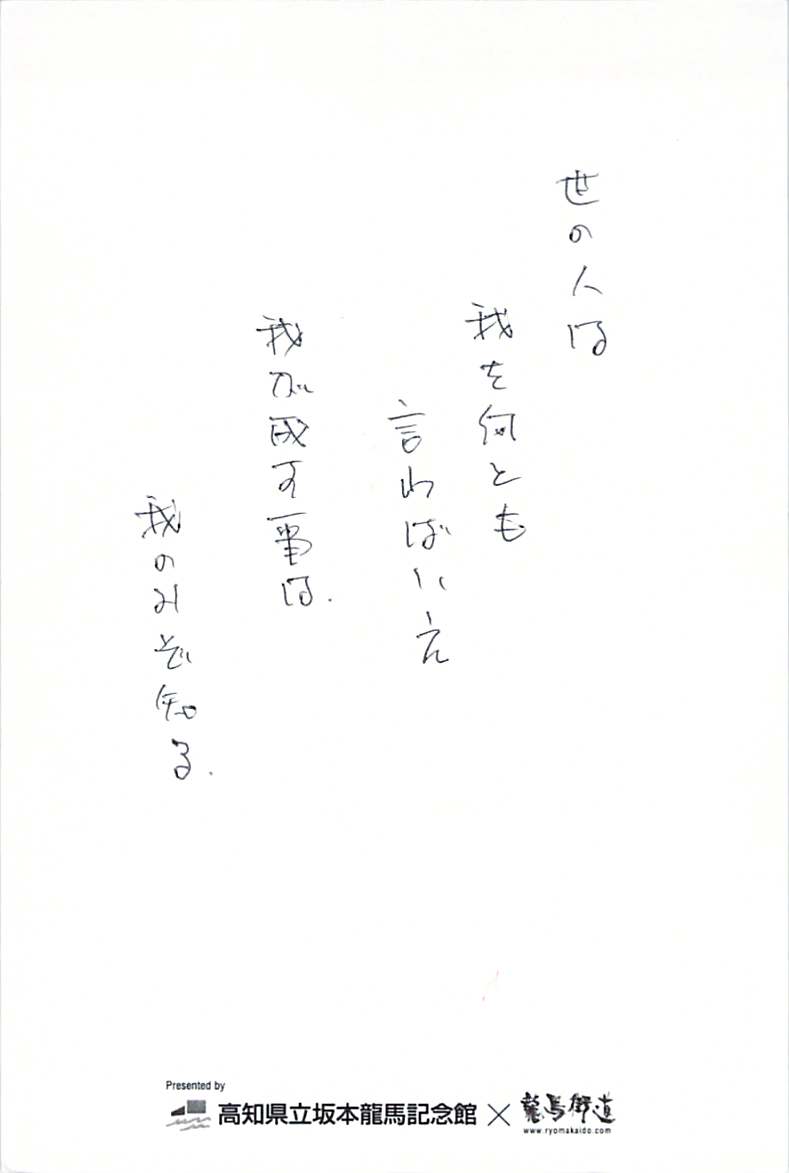 世の人は
我を何とも
言わばいえ
我が成す事は.
我のみぞ知る.
Presented by
高知県立坂本龍馬記念館×龍馬街道
www.ryomakaido.com